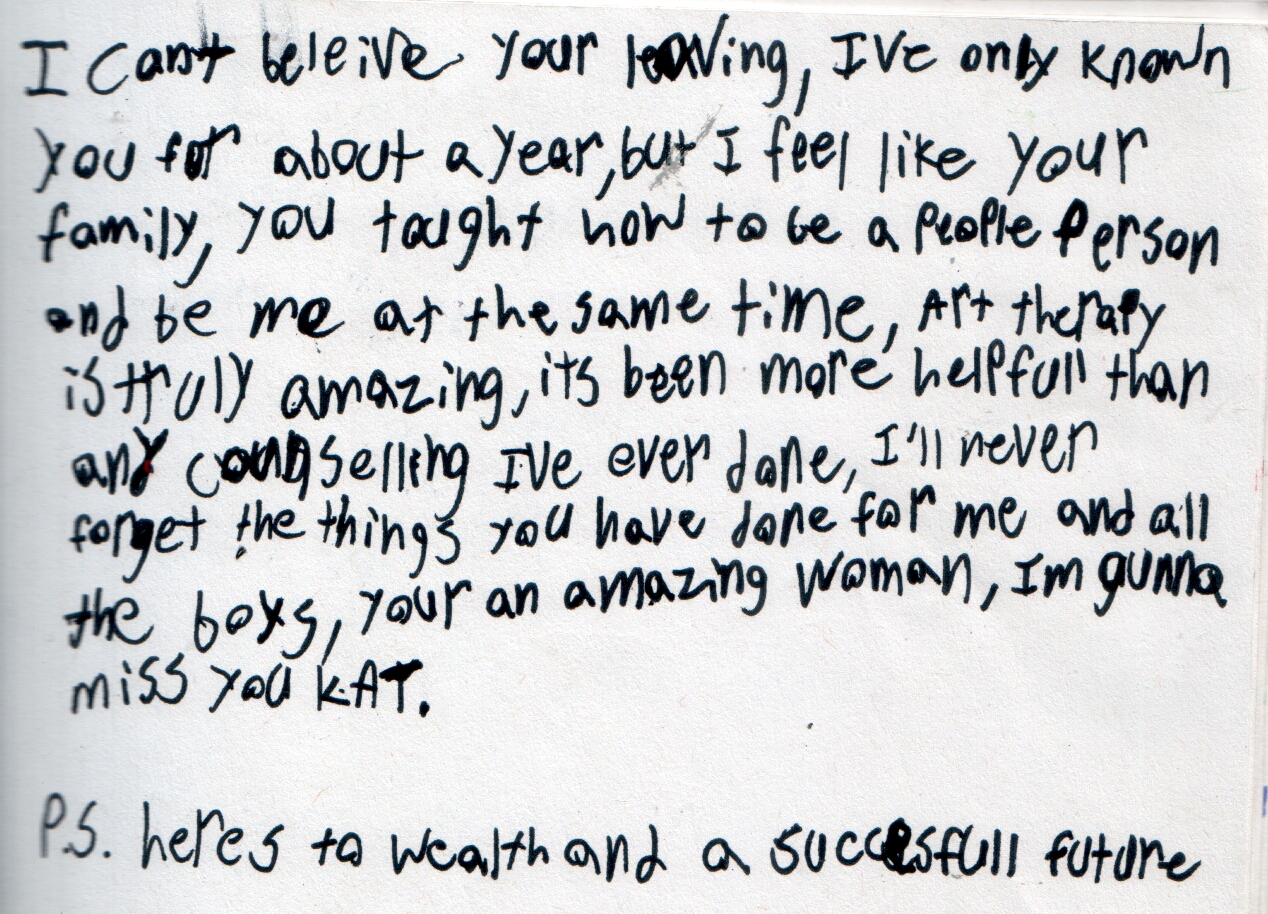 I cant beleive your leaving, IVe only known
you for about a year, but I feel like your
family, you taught how to be a people person
and be me at the same time, Art therapy
is truly amazing, its been more helpfull than
any counselling IVe ever done, I'll never
forget the things you have done for me and all
the boys, your an amazing woman, Im gunna
miss you KAT.
P.S. heres to wealth and a succesfull future